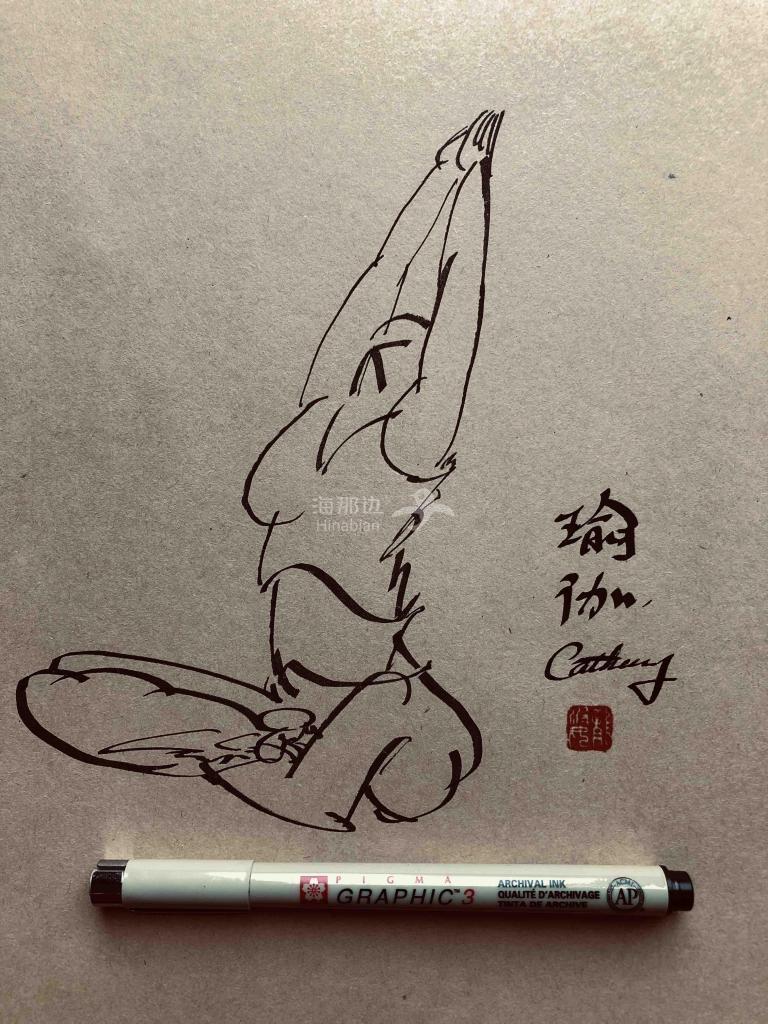 海那边
Hinabian
瑜
伽
PIGMA
GRAPHIC™3
ARCHIVAL INK
QUALITÉ D'ARCHIVAGE
TINTA DE ARCHIVE
ACMI
AP